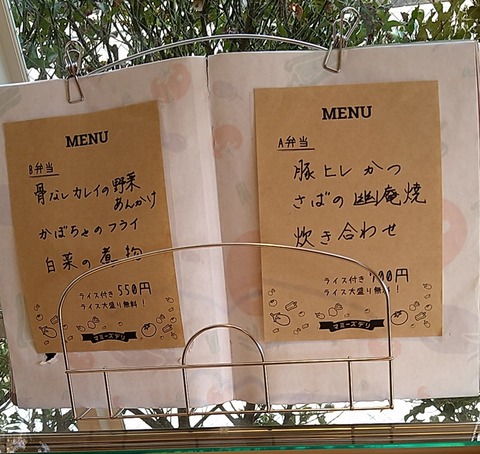 MENU
B弁当
骨なしカレイの野菜
あんかけ
かぼちゃのフライ
白菜の煮物
ライス付き 550円
ライス大盛り無料！
マミーズデリ
MENU
A弁当
豚ヒレかつ
さばの幽庵焼
炊き合わせ
ライス付き 700円
ライス大盛り無料！
マミーズデリ